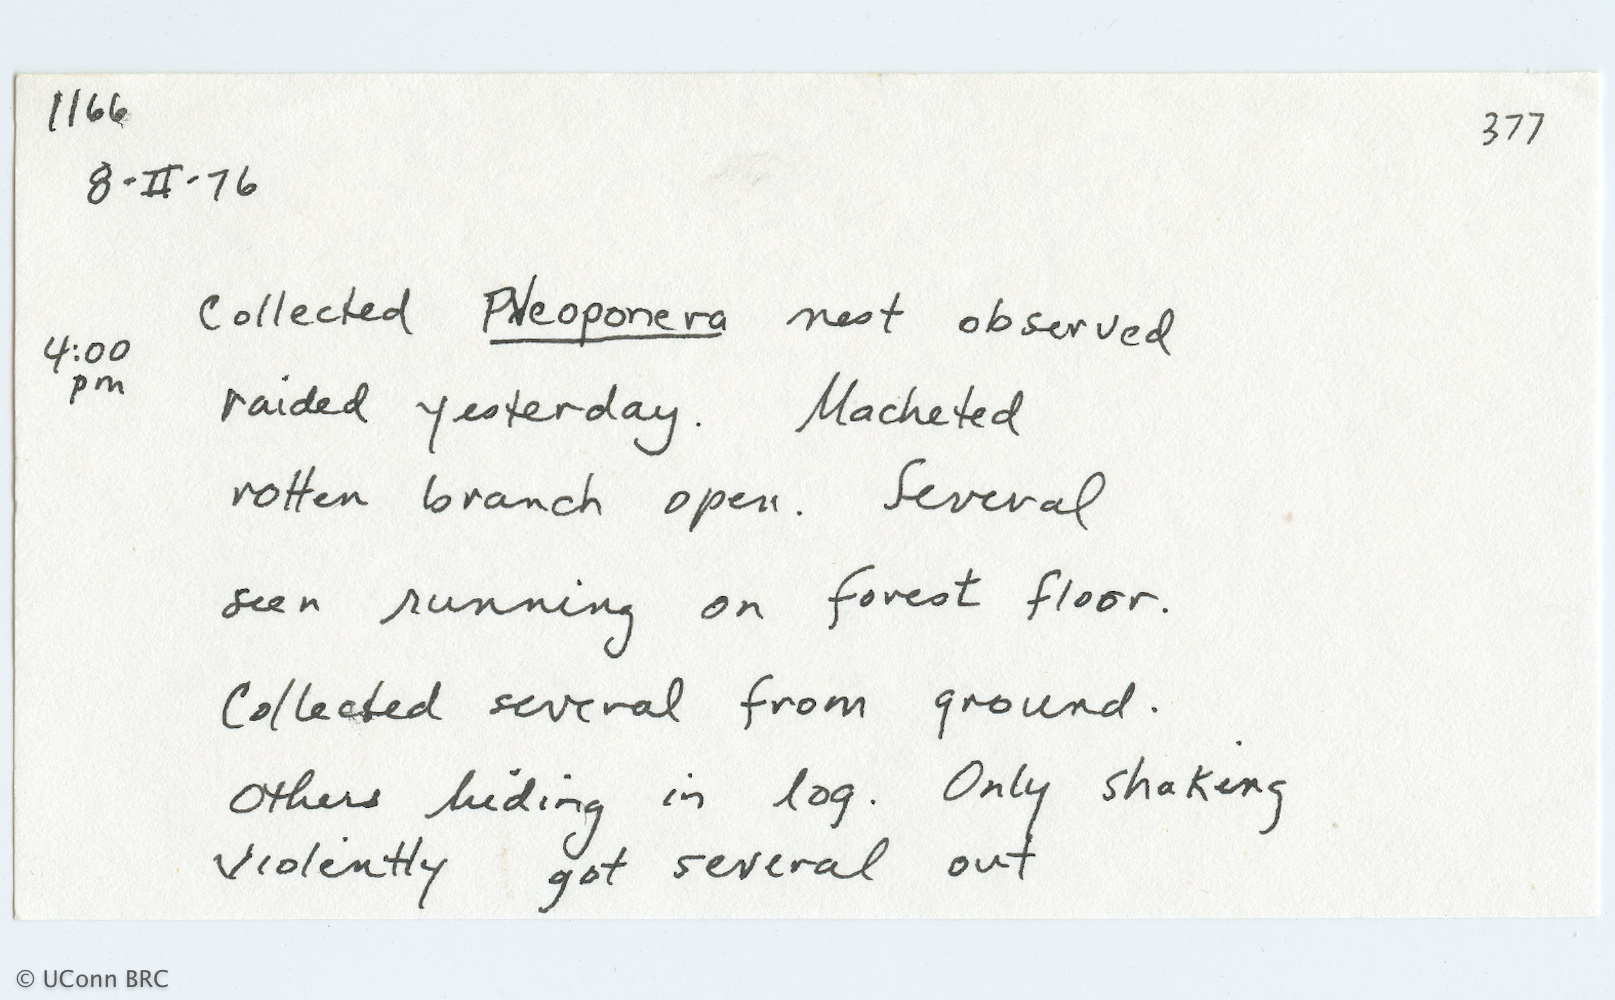 1166
377
8-II-76
Collected Neoponera nest observed
4:00
pm
raided yesterday. Macheted
rotten branch open. Several
seen running on forest floor.
Collected several from ground.
Others hiding in log. Only shaking
violently got several out
© UConn BRC